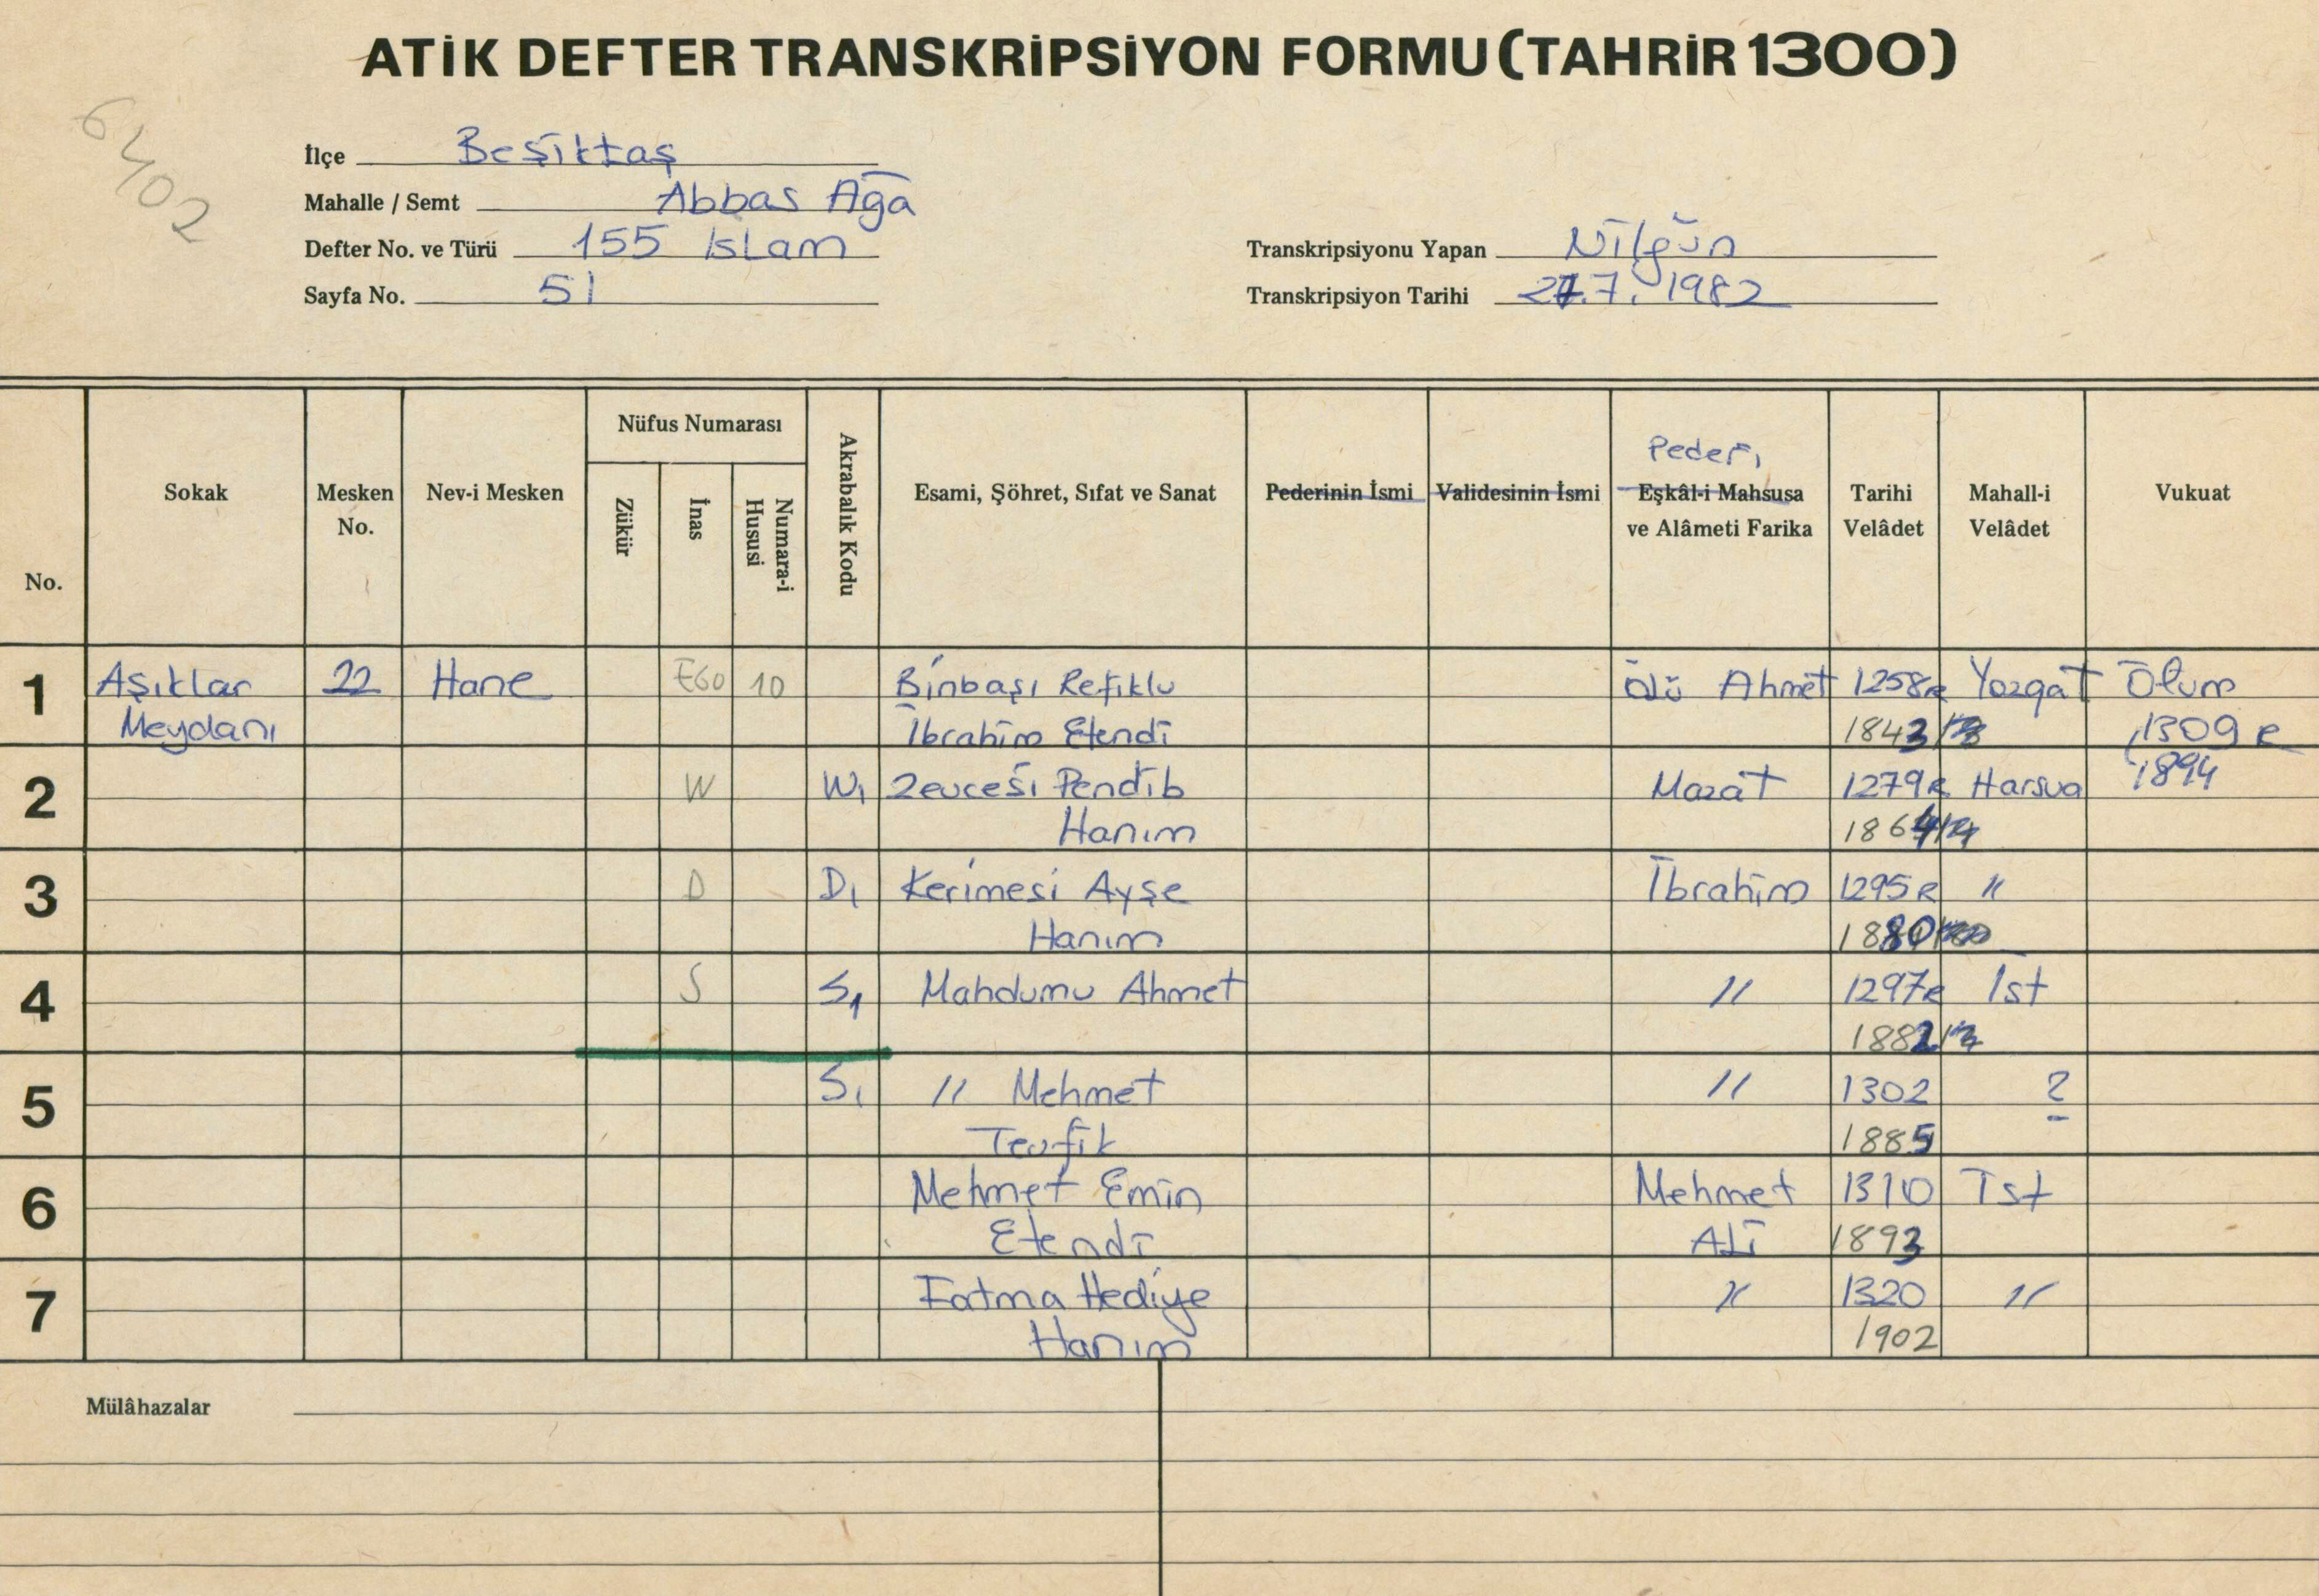 ATİK DEFTER TRANSKRİPSİYON FORMU (TAHRİR 1300)
6402
İlçe Beşiktaş
Mahalle / Semt Abbas Ağa
Defter No. ve Türü 155 Islam
Sayfa No. 51
Transkripsiyonu Yapan Nilgün
Transkripsiyon Tarihi 27.7.1982
No.
Sokak
Mesken No.
Nev-i Mesken
Nüfus Numarası
Zükür
İnas
Numara-i Hususi
Akrabalık Kodu
Esami, Şöhret, Sıfat ve Sanat
Pederinin İsmi
Validesinin İsmi
Peder,
Eşkâl-i Mahsusa
ve Alâmeti Farika
Tarihi Velâdet
Mahall-i Velâdet
Vukuat
1 Aşıklar 22 Hane EGO 10 Binbaşı Refiklu Ölü Ahmet 1258 R Yozgat Ölum
Meydanı İbrahim Efendi 1843 1309 R
2 W W1 Zevcesi Pendib Mazat 1279 R Harsva 1894
Hanım 1864
3 D D1 Kerimesi Ayşe İbrahim 1295 R "
Hanım 1880
4 S S1 Mahdumu Ahmet " 1297 R Ist
1882
5 S1 " Mehmet " 1302 ?
Tevfik 1885
6 Mehmet Emin Mehmet 1310 İst
Efendi Ali 1893
7 Fatma Hediye " 1320 "
Hanım 1902
Mülâhazalar